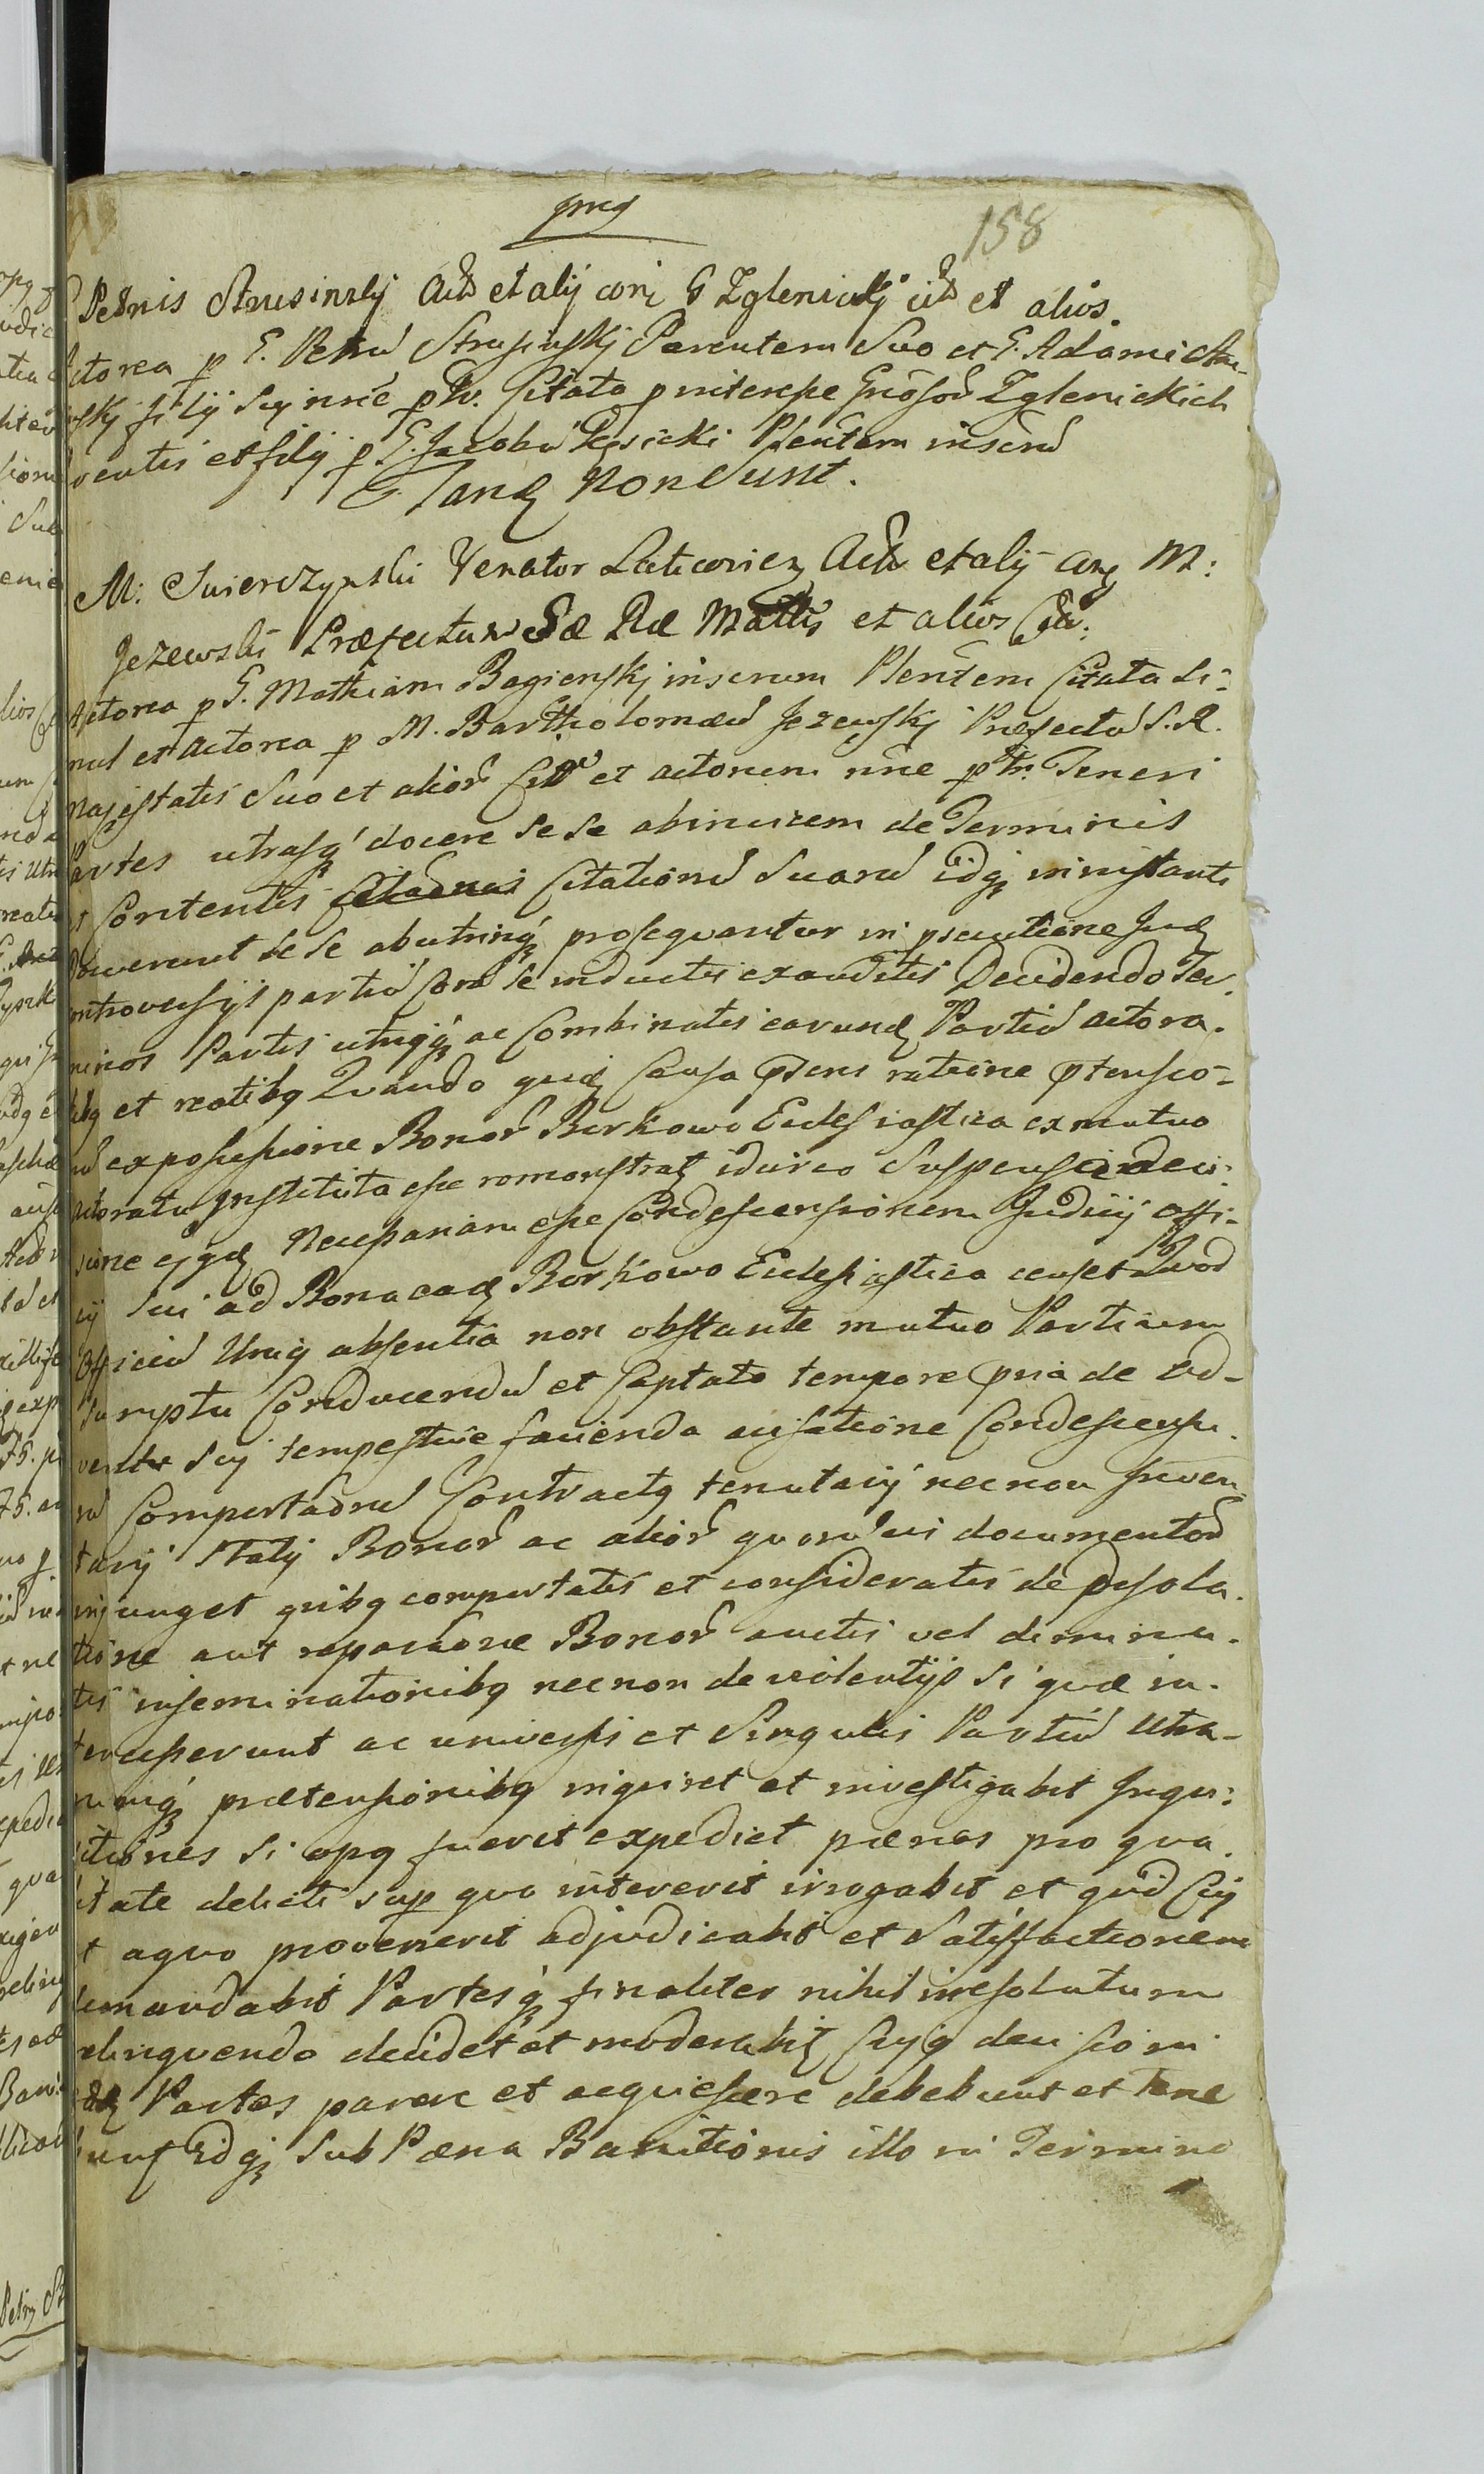 158
G Petrus Strusinskj Actr et alij cont G Zglenickj citt et alios.
Actorea p G. Petrū Strusinskj Parentem Suo et G. Adami Stru-
inskj filij Sui nõe ptr. Citata p niteresse Gnõsor Zglenickich
rentis et filij p G. Jacobū Pęsicki Plentem inserū
Tanq Non Sunt.
M: Swierczynski Venator Laticovien Actr et alij conq M:
Jezewski Præfectum Sæ Ræ Mattis et alios Citt:
Actorea p G. Mathiam Bagienskj inserum Plentem Citata Si-
mul et Actorea p M. Bartholomæū Jezewskj Præfectū S. R.
Majestatis Suo et alior Citt et actorum nõe ptr. Teneri
Partes utrasq docere se se abinvicem de Terminis
et Contentis Citationū Suarū idq in instanti
Docuerunt se se abutrinq prosequantur in psecutione Judq
ontroversijs partiū Cora se inductis exauditis Decidendo Ter-
minos Partis utriusq ac Combinatis earundq Partiū actora-
tibq et reatibq Quando quidq Causa psens ratione ptensio-
nū expossessione Bonor Borkowo Ecclesiastica ex mutuo
actoratu Instituta esse remonstratq idcirco Suspensa deci-
sione ejqdq Necessariam esse Condescensionem Judicij offi-
cij Sui ad Bona eadq Borkowo Ecclesiastica censet Quod
Officiū Uniq absentia non obstante mutuo Partium
Sumptu Conducendū et Captato tempore pria de ad-
ventu Suj tempestive facienda avisatione Condescensu-
rū Comportaõnē Contractq tenutarij necnon Inven-
tarij Traly Bonor ac alior quorūvi documentor
injunget quibq comportatis et consideratis de Desola-
tione aut reparaõne Bonor auctis vel diminu-
tis inseminationibq necnon de violentijs Si quæ in-
tercesserunt ac universis et Singulis Partiū utra-
rumq prætensionibq inquiret et investigabit Inqui-
sitiones Si opq fuerit expediet pænas pro qua-
litate delicti sup quo intererit irrogabit et quid Cuj
et aquo provenerit adjudicabit et Satisfactionem
demandabit Partesq finaliter nihil irresolutum
relinquendo decidet et moderabitq Cujq decisioni
eædq Partes parere et acquiescere debebunt et tene
buntq Idq Sub Pæna Banitionis illo in Termino